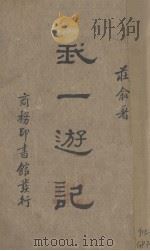 莊俞著
我一遊記
商務印書館發行